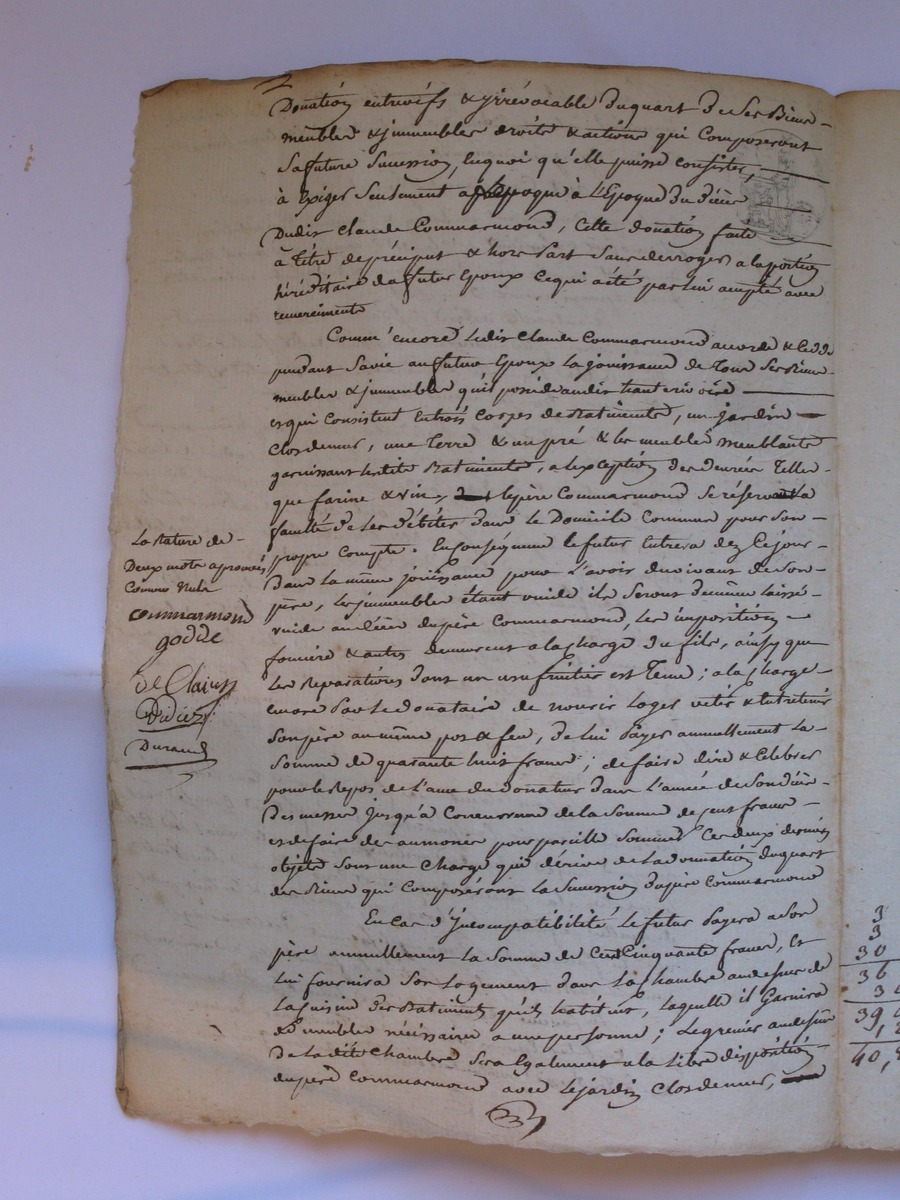 Donation entrevifs & yrrévocable du quart de ses Biens
meubles & jmmeubles droits & actions qui Composeront
sa future Sucession, en quoi qu'elle puisse consister,
à Exiger Seulement à L'Epoque du décès
Dudit Claude Commarmond, Cette donation faite
à titre de préciput & hors part sans derroger a la portion
héréditaire du futur Epoux ce qui a été par lui accepté avec
remerciments
Comm'encore Ledit Claude Commarmond accorde & Cede
pendant Sa vie au futur Epoux La jouissance de Tous Ses Biens
meubles & jmmeubles qu'il possède audit hauterivoire
et qui Consistent En trois Corps de Batiments, un jardin
Clos de murs, une Terre & un pré & les meubles meublants
garnissant lesdits Batiments, a lexception des denrées Telles
que farine & vin, le père Commarmond se réservant la
faculté de les débiter dans le Domicile Commun pour son
propre Compte. En Conséquence le futur Entrera dez Ce jour
dans la même jouissance pour L'avoir du vivant de Son
père, Les jmmeubles étant vuide ils Seront de même laissé
vuide au décès du père Commarmond, Les impositions
foncière & autres demeurent a la charge du fils, ainsy que
Les Reparations dont un usufruitier est Tenu; a la charge
encore par le donataire de nourir Loger vetir & Entretenir
Son père au même pot & feu, de Lui payer annuellement La
Somme de quarante huit francs; de faire dire & Celebrer
pour le Repos de L'ame du donateur dans L'année de Son décès
des messes jusqu'à Concurrence de la Somme de Cent francs
et de faire des aumones pour pareille Somme Ces deux derniers
objets sont une Charge qui dérive de La donnation du quart
des Biens qui Composeront La Sucession du père Commarmond
En Cas d'Jncompatibilité Le futur payera a Son
père annuellement La Somme de Cent Cinquante francs, Et
Lui fournira Son Logement dans La Chambre au desus de
La Cuisine des Batiments qu'ils habitent, Laquelle il Garnira
de meubles nécéssaire a une personne; Le grenier au desus
de La dite Chambre Sera Egalement a la Libre disposition
du père Commarmond avec Le jardin Clos de murs,
La Rature de
Deux mots aprouvés
Comme Nuls
Commarmond
godde
Durand
3
3
30
36
3
39
40,